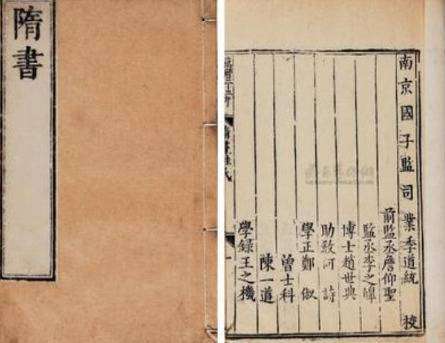 隋書
南京國子監司業季道統 校
前監丞詹仰聖
監丞李之皞
博士趙世典
助教何詩
學正鄭俶
曾士科
陳一道
學録王之機